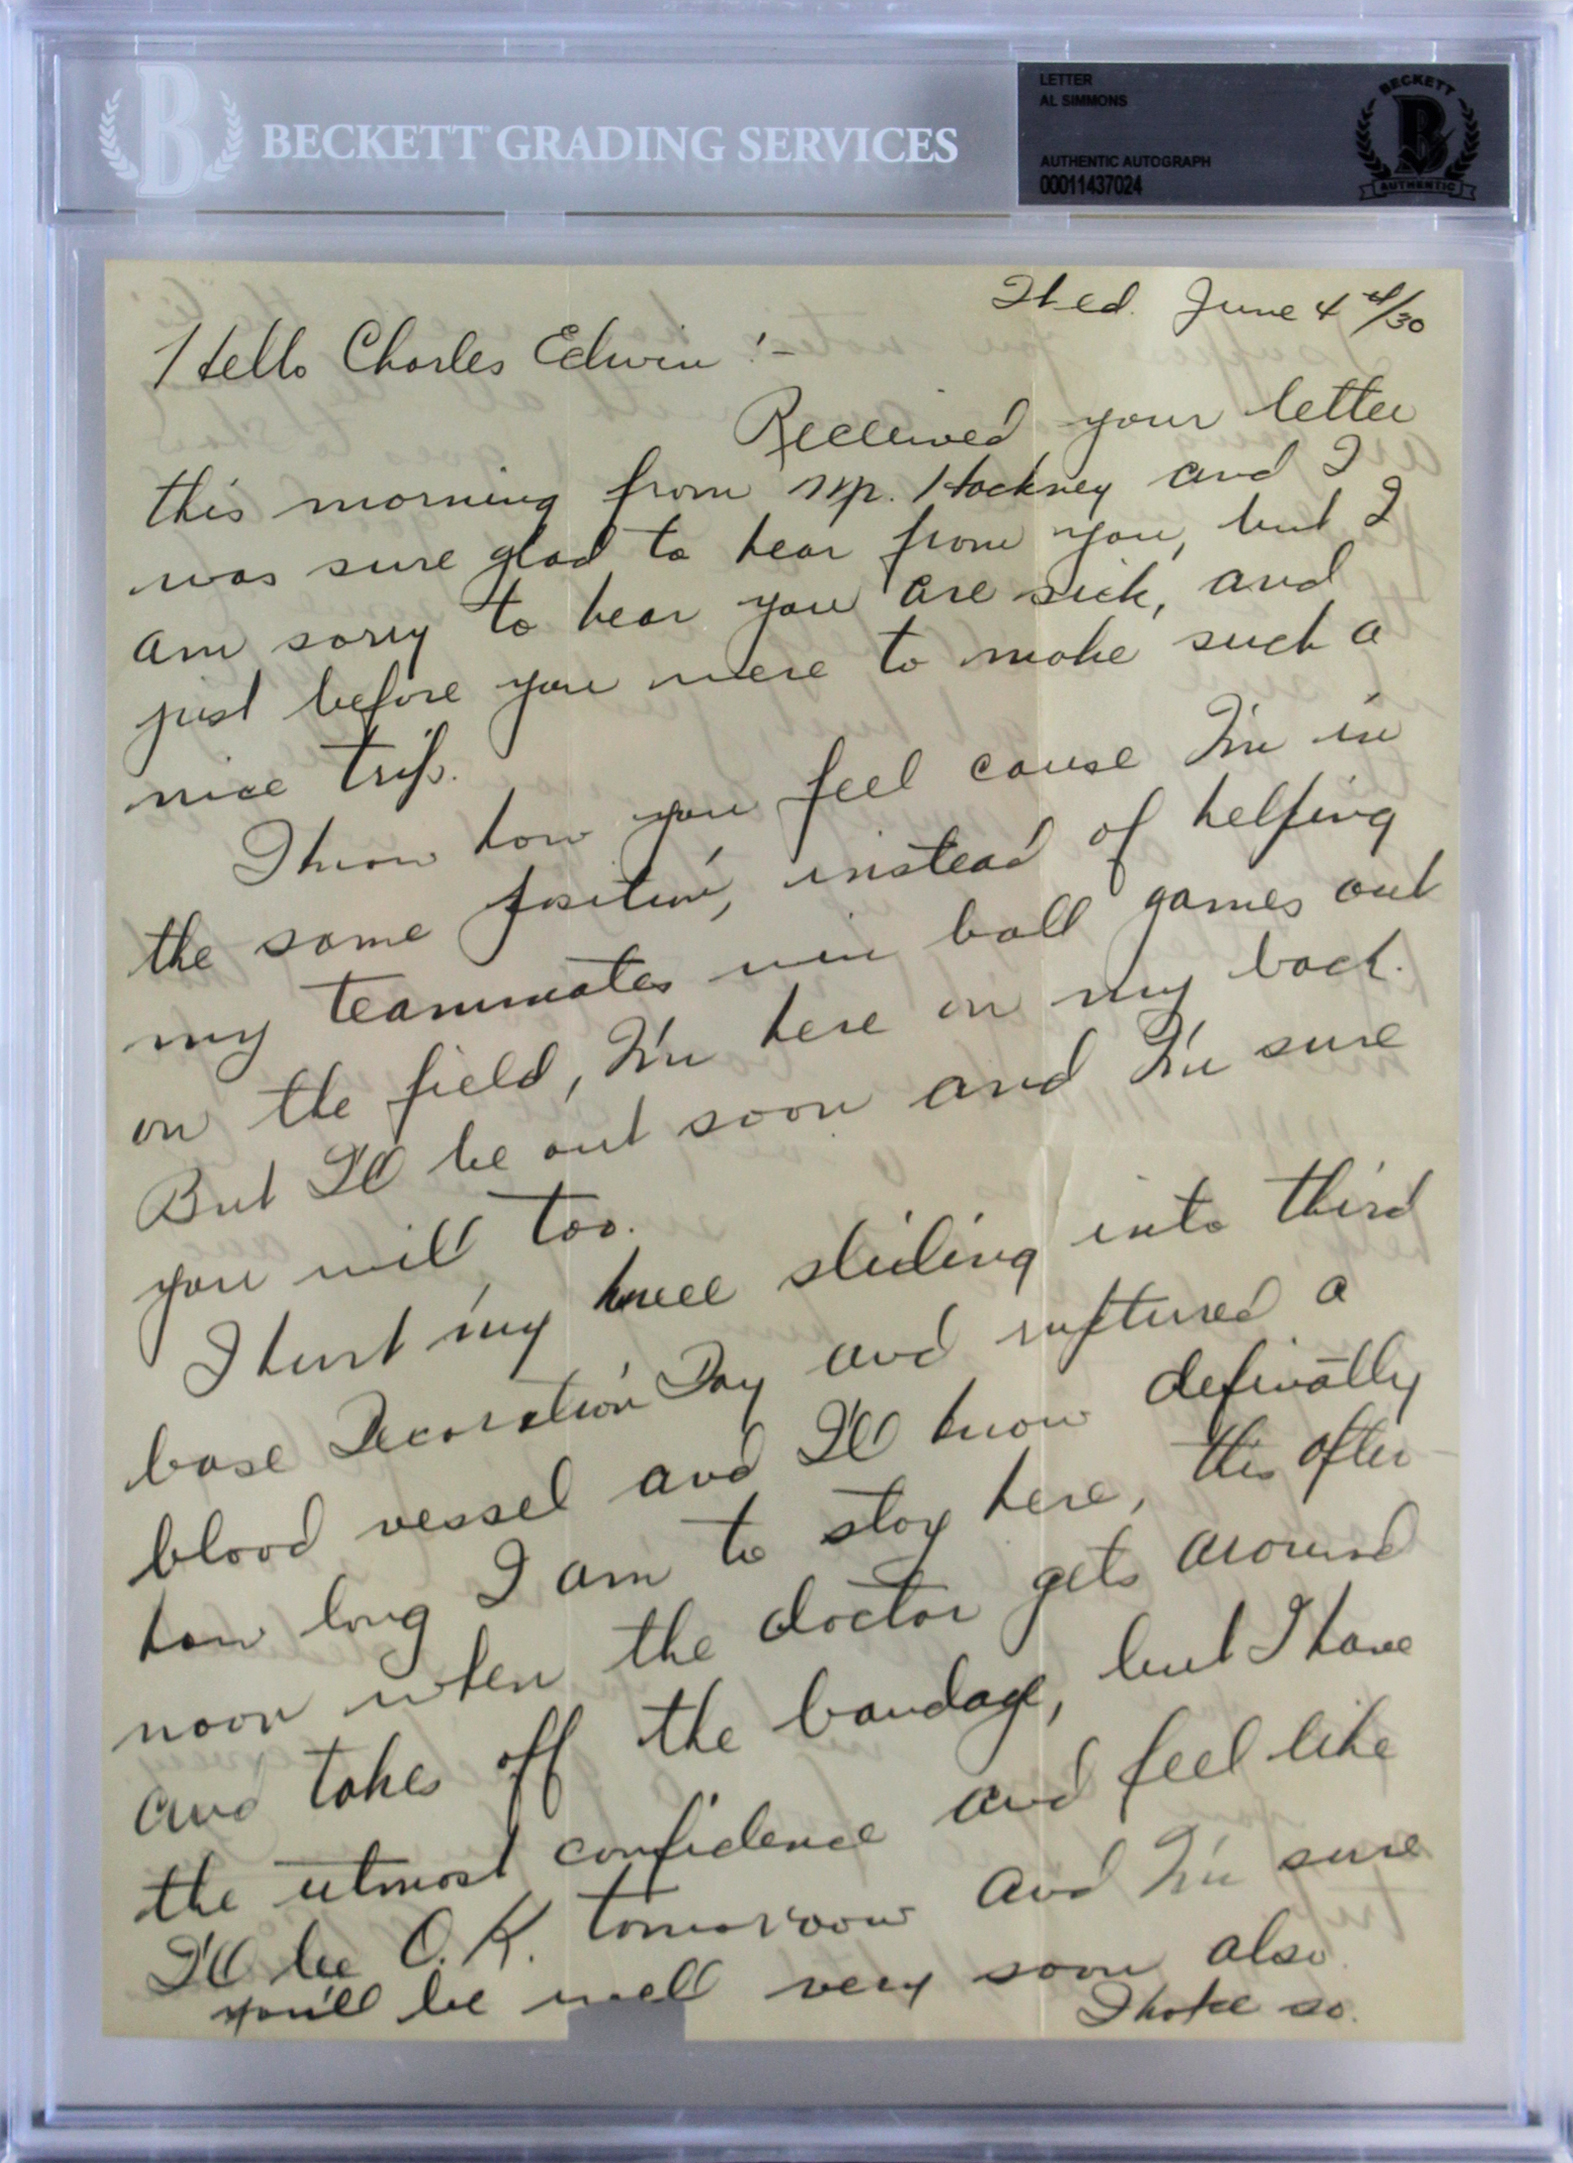 BECKETT GRADING SERVICES
LETTER
AL SIMMONS
AUTHENTIC AUTOGRAPH
00011437024
BECKETT
B
AUTHENTIC
Wed. June 4th/30
Hello Charles Edwin!-
Received your letter
this morning from Mr. Hackney and I
was sure glad to hear from you, but I
am sorry to hear you are sick, and
just before you were to make such a
nice trip.
I know how you feel cause I'm in
the same position, instead of helping
my teammates win ball games out
on the field, I'm here on my back.
But I'll be out soon and I'm sure
you will too.
I hurt my knee sliding into third
base Decoration Day and ruptured a
blood vessel and I'll know definatlly
how long I am to stay here, this after-
noon when the doctor gets around
and takes off the bandage, but I have
the utmost confidence and feel like
I'll be O.K. tomorroow and I'm sure
you'll be well very soon also.
I hope so.